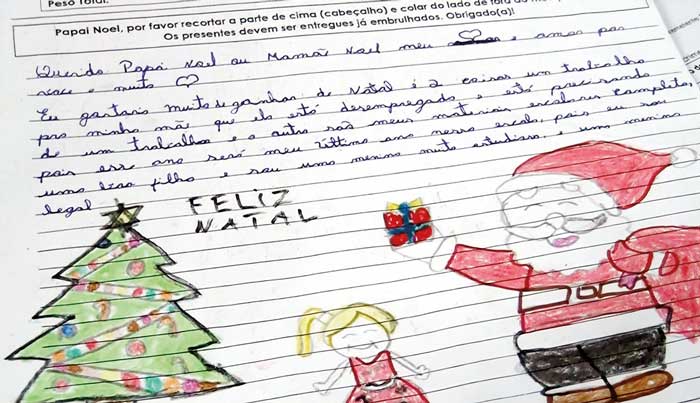 Peso Total:
Papai Noel, por favor recortar a parte de cima (cabeçalho) e colar do lado de fora
Os presentes devem ser entregues já embrulhados. Obrigado(a)!
Querido Papai Noel ou Mamãe Noel meu e amor por
voce e muito
Eu gostaria muito de ganhar de Natal é 2 coisas um trabalho
pra minha mãe que ela está desempregada e está precisando
de um trabalho e o outro são meus materiais escolares completo,
pois esse ano será meu último ano nessa escola, pois eu sou
uma boa filha e sou uma menina muito estudiosa e uma menina
legal
FELIZ
NATAL